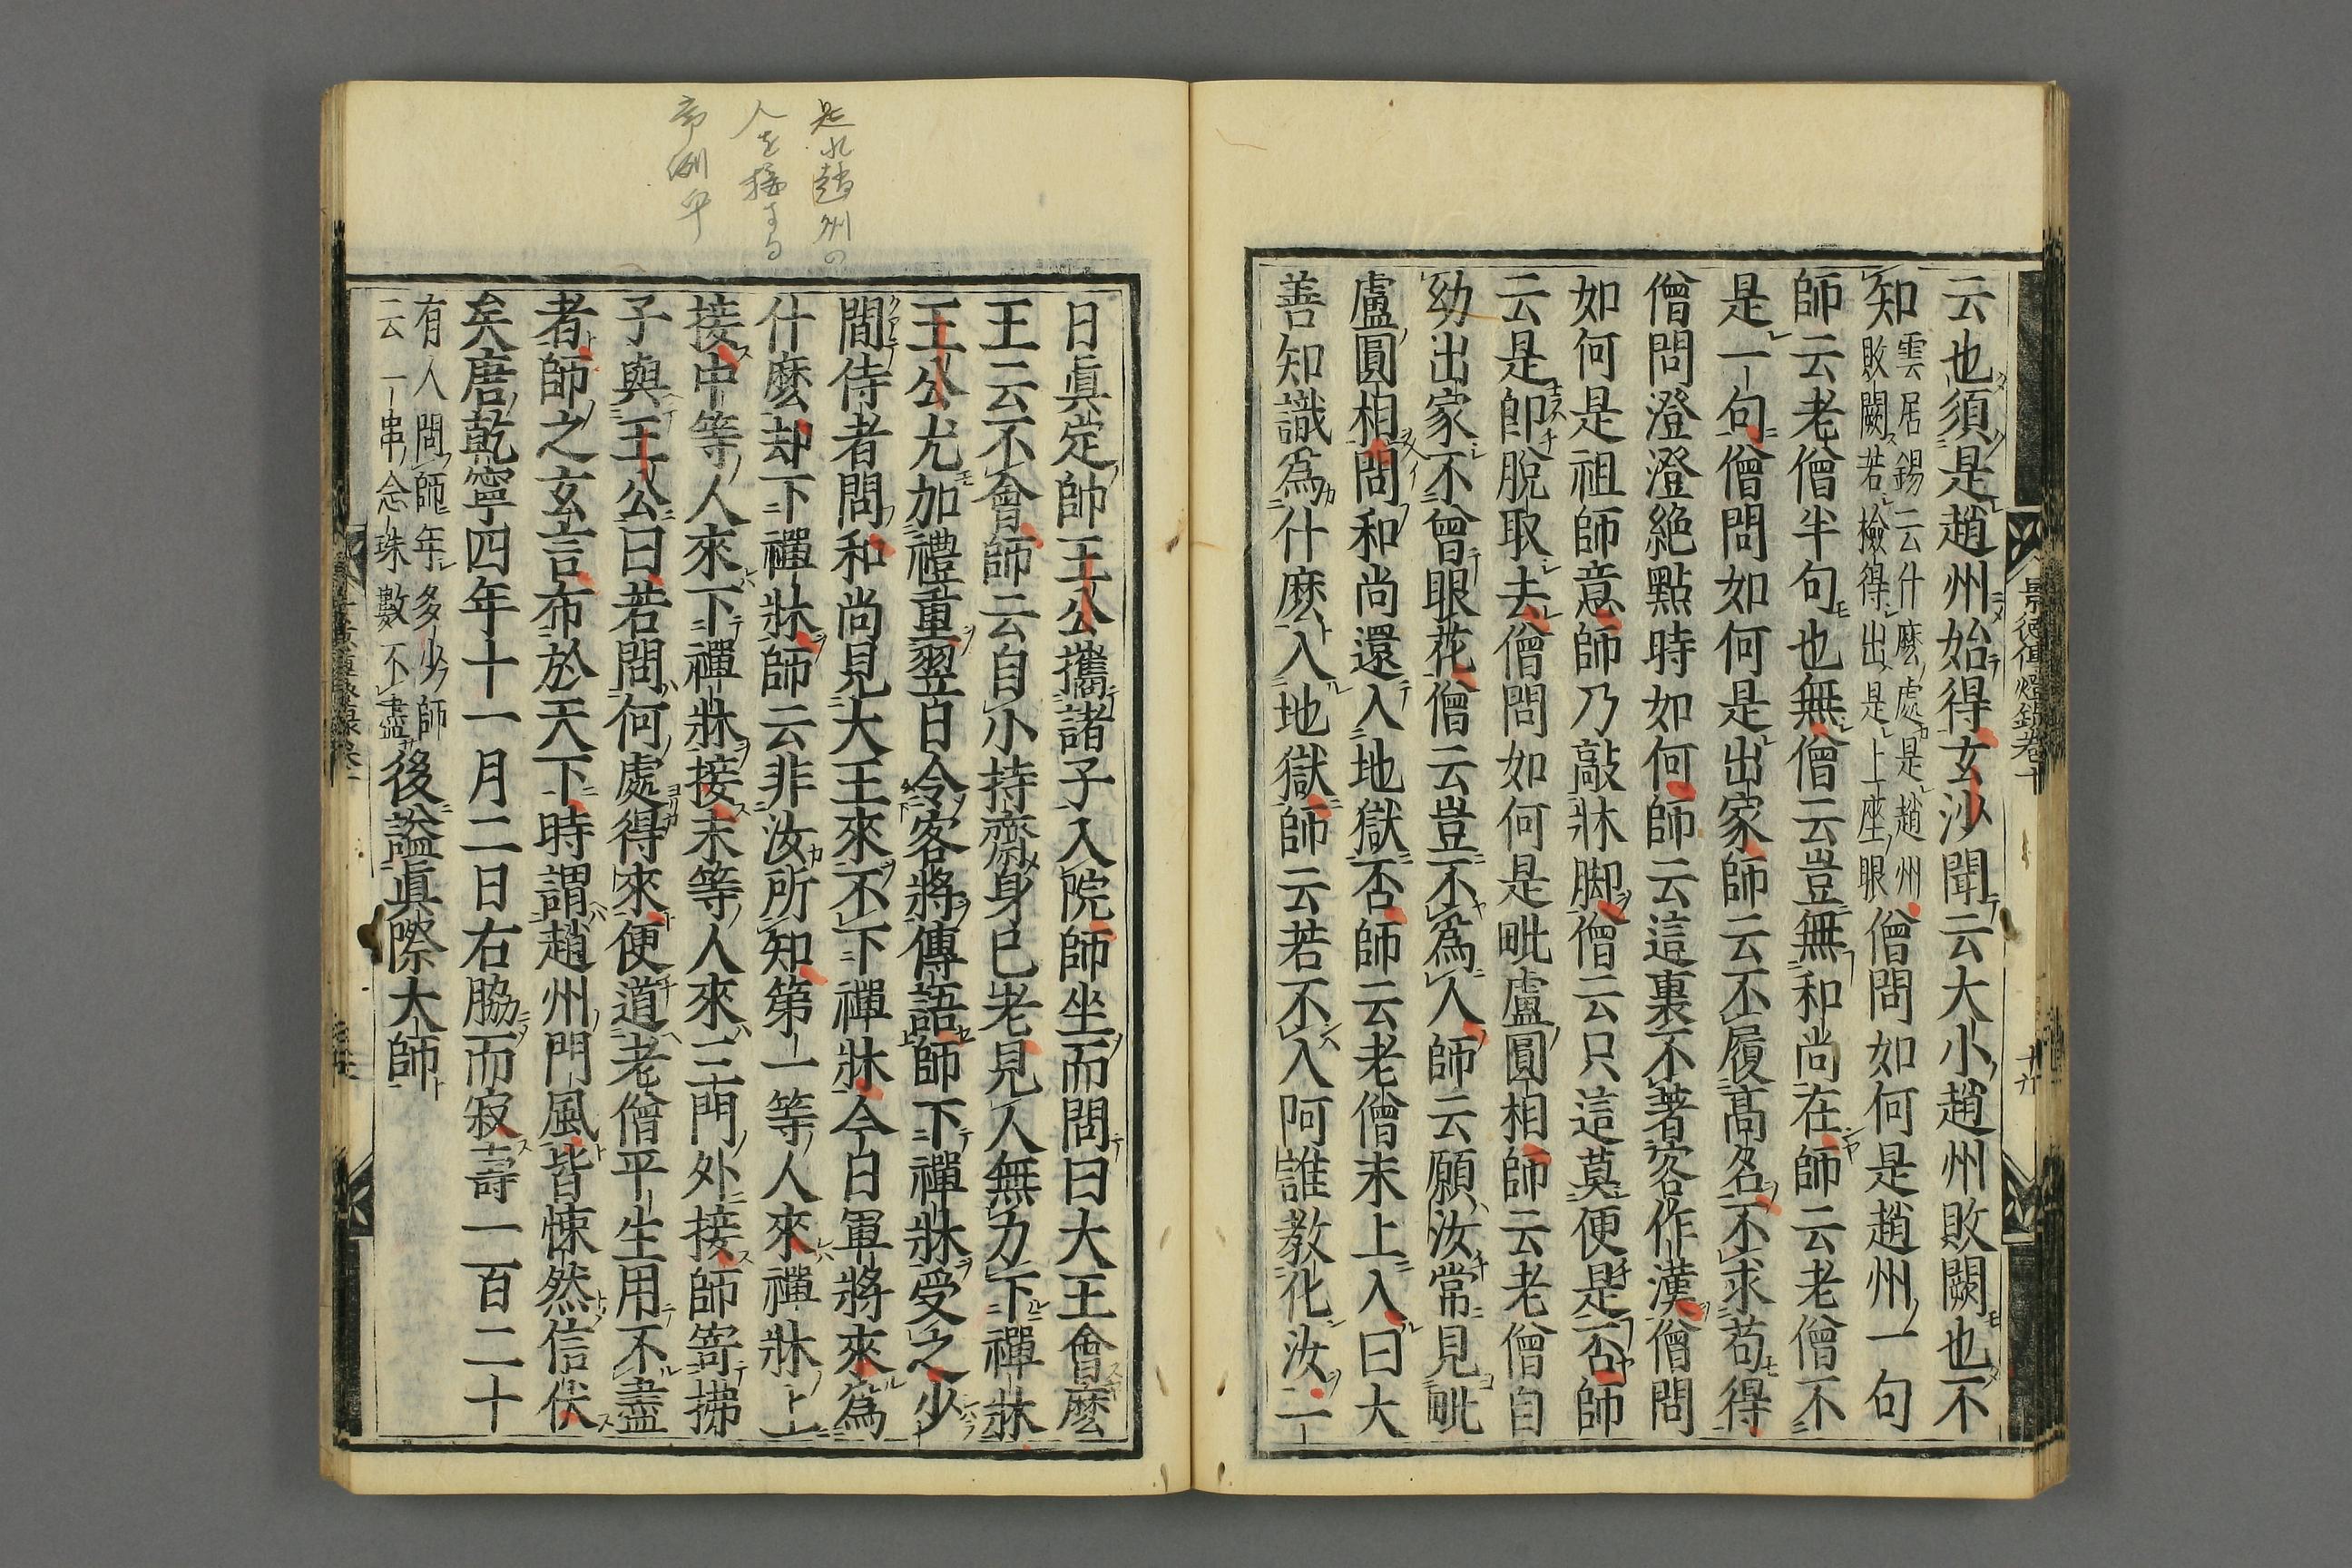 云也須是趙州始得玄沙聞云大小趙州敗闕也不
知雲居錫云什麼處是趙州
敗闕若檢得出是上座眼僧問如何是趙州一句
師云老僧半句也無僧云豈無和尚在師云老僧不
是一句僧問如何是出家師云不履高名不求苟得
僧問澄澄絶點時如何師云這裏不著客作漢僧問
如何是祖師意師乃敲牀脚僧云只這莫便是否師
云是即脫取去僧問如何是毗盧圓相師云老僧自
幼出家不曾眼花僧云豈不爲人師云願汝常見毗
盧圓相問和尚還入地獄否師云老僧末上入曰大
善知識爲什麽入地獄師云若不入阿誰教化汝一
景德傳燈錄卷十
是れ趙州の
人を接する
日眞定帥王公攜諸子入院師坐而問曰大王會麽
王云不會師云自小持齋身已老見人無力下禪牀
王公尤加禮重翌日令客將傳語師下禪牀受之少
間侍者問和尚見大王來不下禪牀今日軍將來爲
什麽却下禪牀師云非汝所知第一等人來禪牀上
接中等人來下禪牀接末等人來三門外接師寄拂
子與王公曰若問何處得來便道老僧平生用不盡
者師之玄言布於天下時謂趙州門風皆悚然信伏
矣唐乾寧四年十一月二日右脇而寂壽一百二十
有人問師年多少師
云一串念珠數不盡後謚眞際大師